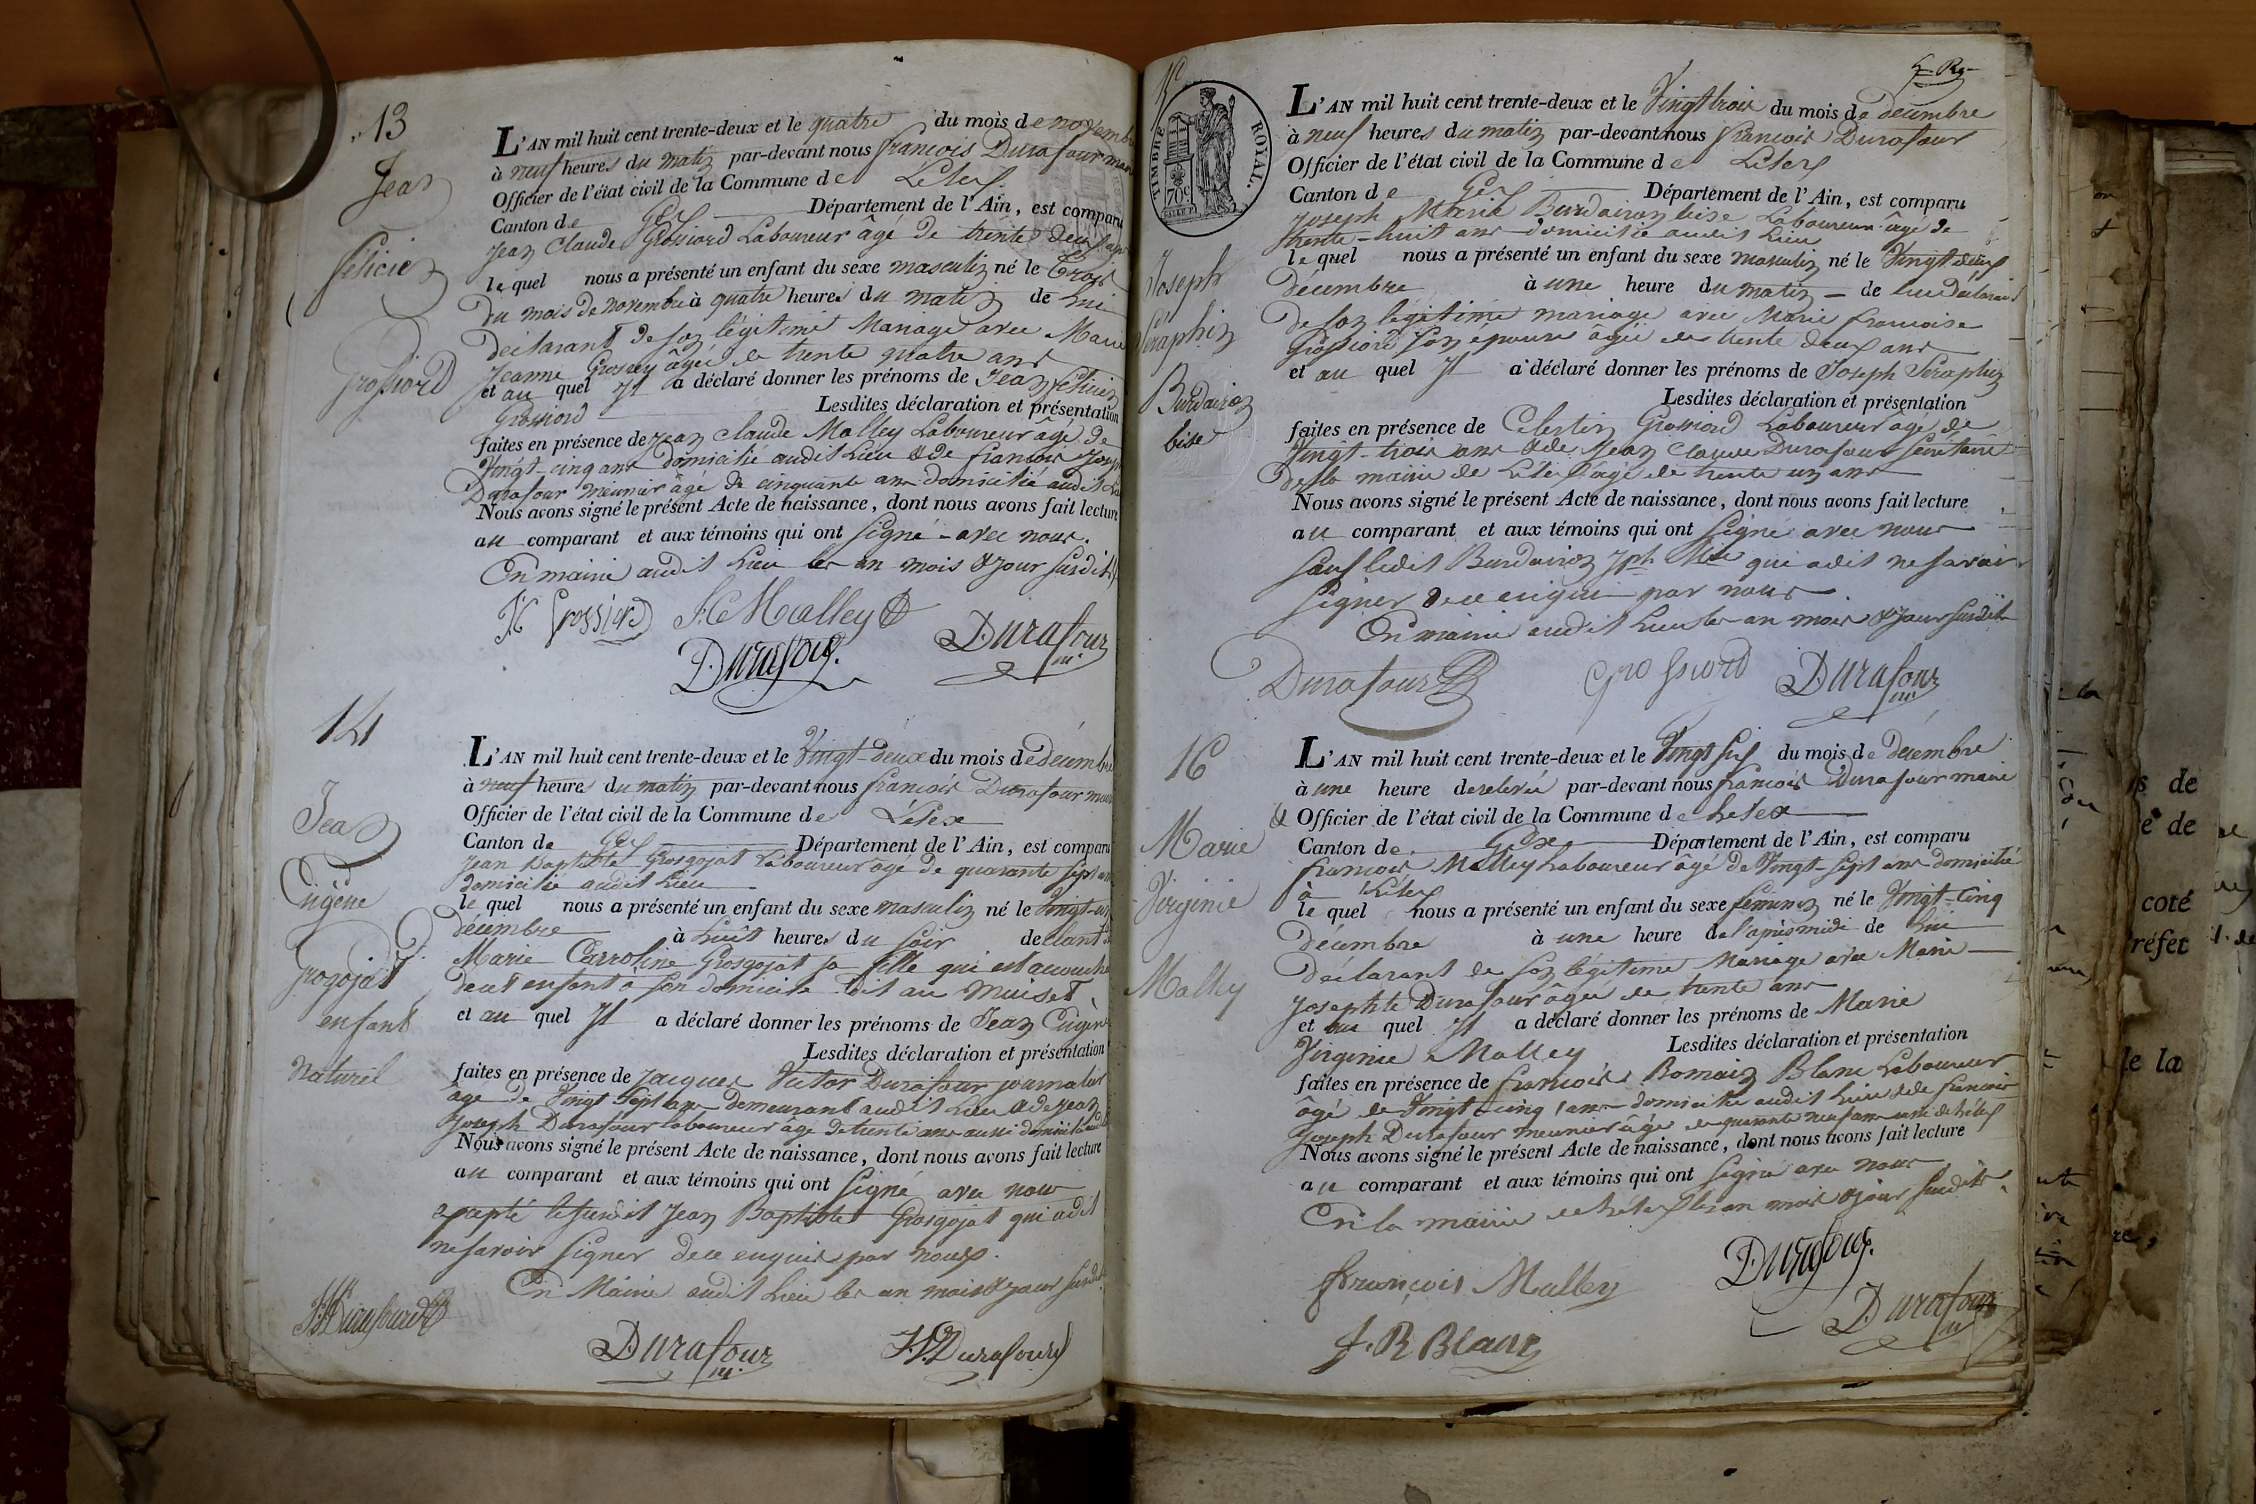 13
Jean
félicien
Grossiord
L'AN mil huit cent trente-deux et le quatre du mois de novembre
à neuf heures du matin par-devant nous françois Durafour maire
Officier de l'état civil de la Commune de Lélex
Canton de Gex Département de l'Ain, est comparu
Jean Claude Grossiord Laboureur âgé de trente deux ans
lequel nous a présenté un enfant du sexe masculin né le trois
du mois de novembre à quatre heures du matin de lui
déclarant de son légitime Mariage avec Marie
Jeanne âgée de trente quatre ans
et au quel il a déclaré donner les prénoms de Jean félicien
Grossiord Lesdites déclaration et présentation
faites en présence de Jean Claude Malley Laboureur âgé de
Vingt-cinq ans domicilié audit Lieu & de francois Joseph
Durafour meunier âgé de cinquante ans domicilié audit Lieu
Nous avons signé le présent Acte de naissance, dont nous avons fait lecture
au comparant et aux témoins qui ont signé avec nous.
En mairie audit Lieu les an mois & jour susdits
JC Grossiord J.C Malley
Durafour. Durafour
14
Jean
Eugène
Grogojat
enfant
naturel
L'AN mil huit cent trente-deux et le Vingt-deux du mois de décembre
à neuf heures du matin par-devant nous françois Durafour maire
Officier de l'état civil de la Commune de Lélex
Canton de Gex Département de l'Ain, est comparu
Jean Baptiste Grosgojat Laboureur âgé de quarante sept ans
domicilié audit Lieu
lequel nous a présenté un enfant du sexe masculin né le Vingt-un
décembre à huit heures du soir declant de
Marie Carroline Grosgojat sa fille qui est accouchée
de cet enfant à son domicile dit au Muiset
et au quel il a déclaré donner les prénoms de Jean Eugène
Lesdites déclaration et présentation
faites en présence de Jacques Victor Durafour journalier
âgé de Vingt Sept ans demeurant audit Lieu & de Jean
Joseph Durafour laboureur âgé de trente ans aussi domicilié audit
Nous avons signé le présent Acte de naissance, dont nous avons fait lecture
au comparant et aux témoins qui ont signé avec nous
excepté le susdit Jean Baptiste Grosgojat qui a dit
ne savoir signer de ce enquis par nous.
En Mairie audit Lieu les an mois & jour susdits
Durafour
Durafour J.V Durafour
TIMBRE ROYAL.
70c
Joseph
Séraphin
Burdairon
bise
L'AN mil huit cent trente-deux et le Vingt trois du mois de décembre
à neuf heures du matin par-devant nous françois Durafour
Officier de l'état civil de la Commune de Lélex
Canton de Gex Département de l'Ain, est comparu
Joseph Marie Burdairon bise Laboureur âgé de
trente-huit ans domicilié audit Lieu
lequel nous a présenté un enfant du sexe masculin né le Vingt deux
décembre à une heure du matin de lui déclarant
de son légitime mariage avec Marie francoise
Grossiord son épouse âgée de trente deux ans
et au quel il a déclaré donner les prénoms de Joseph Séraphin
Lesdites déclaration et présentation
faites en présence de Célestin Grossiord Laboureur âgé de
Vingt-trois ans & de Jean Claude Durafour Secrétaire
de la mairie de Lélex âgé de trente un ans
Nous avons signé le présent Acte de naissance, dont nous avons fait lecture
au comparant et aux témoins qui ont signé avec nous
sauf ledit Burdairon Jph Mie qui a dit ne savoir
signer de ce enquis par nous.
En mairie audit Lieu les an mois & jour susdits
Durafour Grossiord Durafour
16
Marie
Virginie
Malley
L'AN mil huit cent trente-deux et le Vingt six du mois de Décembre
à une heure de relevée par-devant nous françois Durafour maire
Officier de l'état civil de la Commune de Lélex
Canton de Gex Département de l'Ain, est comparu
francois Malley Laboureur âgé de Vingt-sept ans domicilié
à Lélex
lequel nous a présenté un enfant du sexe féminin né le Vingt-cinq
Décembre à une heure de l'après midi de lui
déclarant de son légitime Mariage avec Marie
Josephte Durafour âgée de trente ans
et au quel il a déclaré donner les prénoms de Marie
Virginie Malley Lesdites déclaration et présentation
faites en présence de francois Romain Blanc Laboureur
âgé de Vingt-cinq ans domicilié audit Lieu & de francois
Joseph Durafour meunier âgé de quarante neuf ans de Lélex
Nous avons signé le présent Acte de naissance, dont nous avons fait lecture
au comparant et aux témoins qui ont signé avec nous
En la mairie de Lélex les an mois & jour susdits.
Durafour.
françois Malley
Durafour
f. R Blanc
s de
é de
coté
réfet
de la